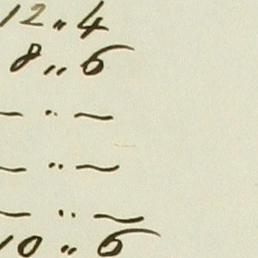 12 „ 4
8 „ 6
— „ —
— „ —
— „ —
10 „ 6